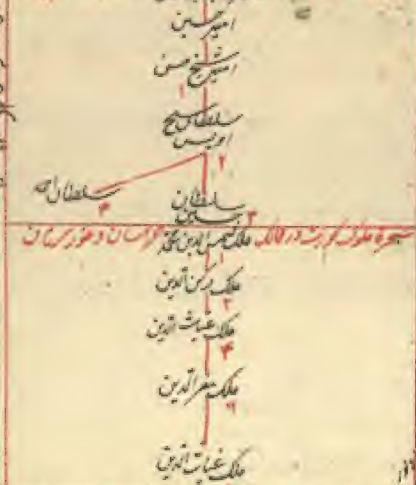 امیر حسین
امیر شیخ حسن
۱
سلطان شیخ
اویس
۲
سلطان احمد
۴
سلطان
حسین
۳
شجرهٔ ملوک کورت در ممالک خراسان و
ملک شمس الدین محمد
۱
ملک رکن الدین
۲
ملک غیاث الدین
۴
ملک معزالدین
۶
ملک غیاث الدین